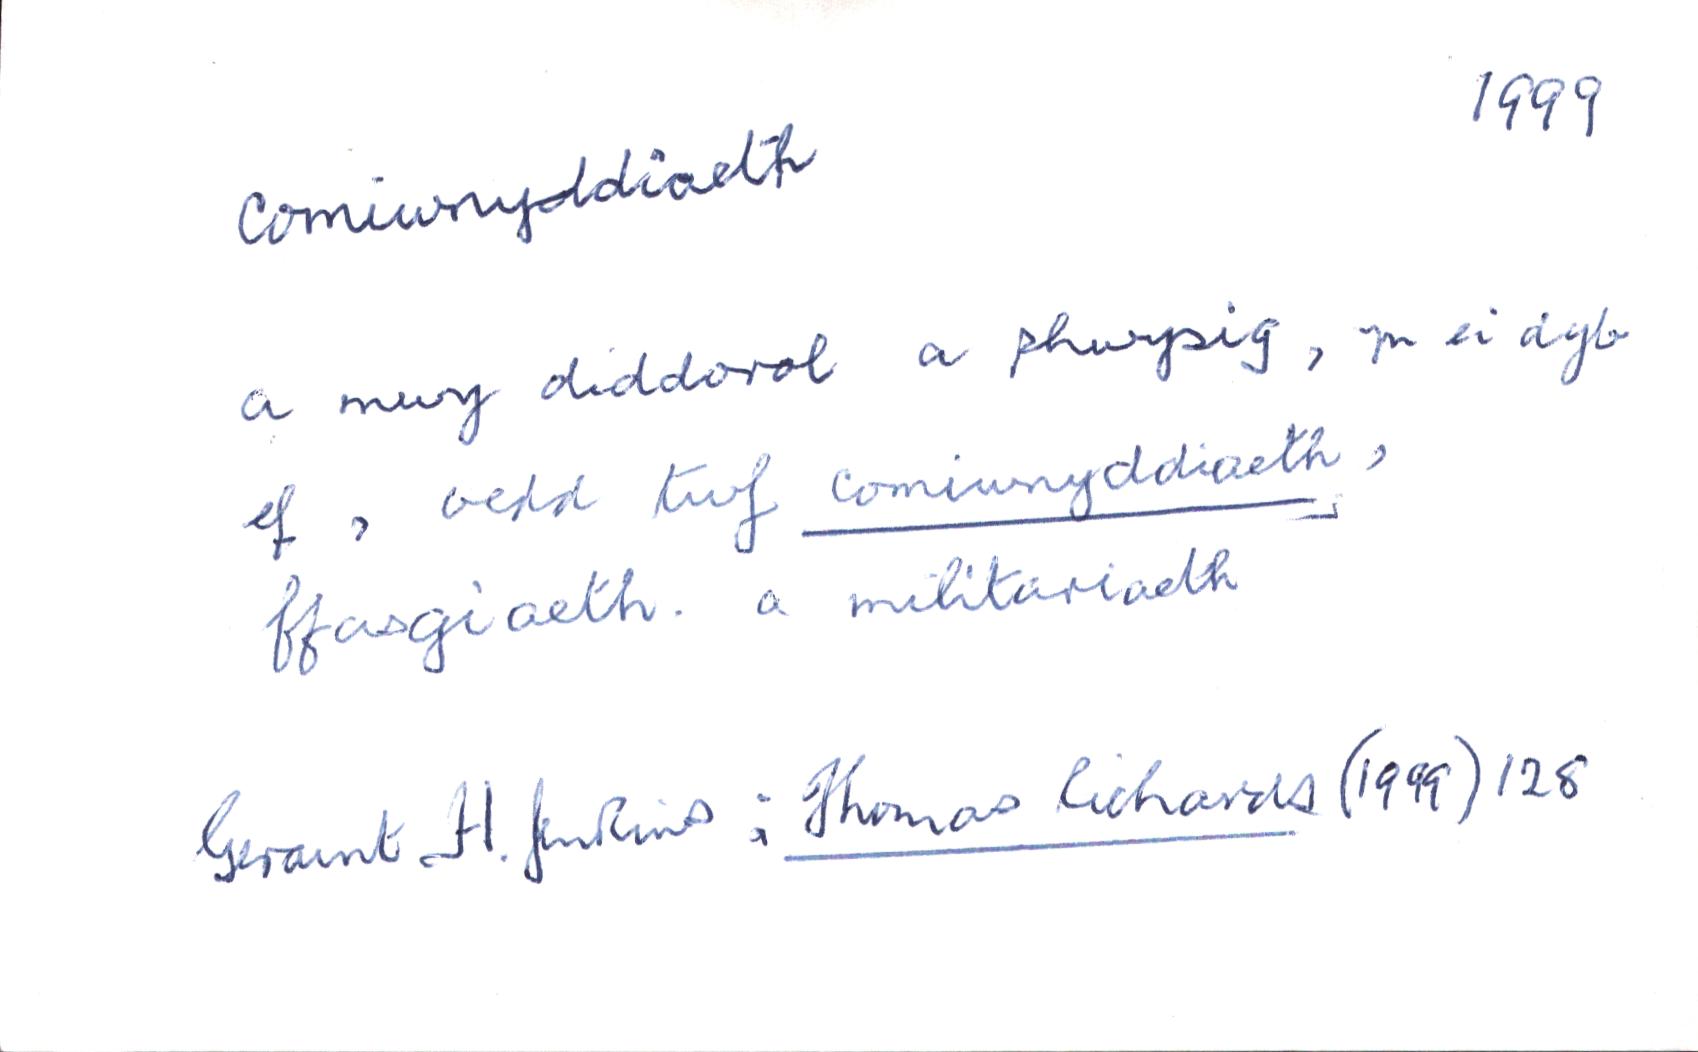 1999
comiwnyddiaeth
a mwy diddorol a phwysig, yn ei dyb
ef, oedd twf comiwnyddiaeth,
ffasgiaeth. a militariaeth
Geraint H. Jenkins : Thomas Richards (1999) 128